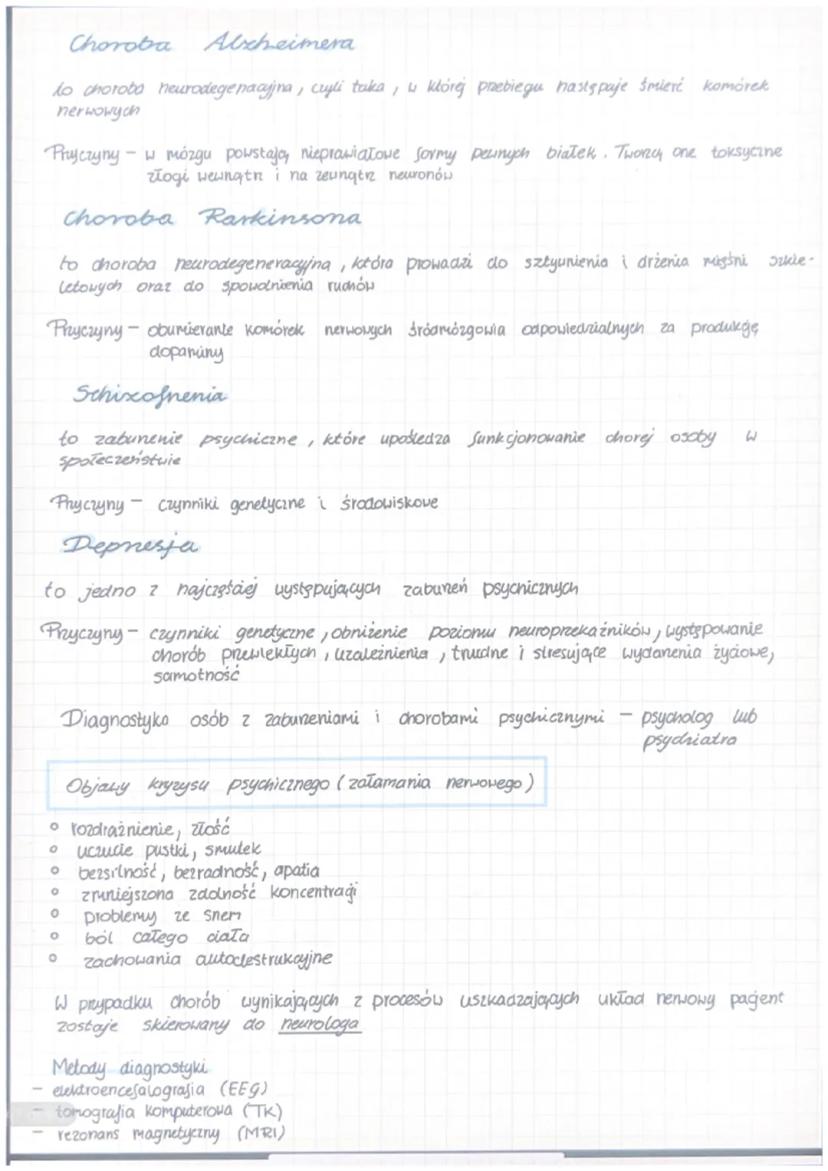 Choroba Alzheimera
to choroba neurodegeneracyjna, czyli taka, w której przebiegu następuje śmierć komórek
nerwowych
Przyczyny – w mózgu powstają nieprawidłowe formy pewnych białek. Tworzą one toksyczne
złogi wewnątrz i na zewnątrz neuronów
Choroba Parkinsona
to choroba neurodegeneracyjna, która prowadzi do sztywnienia i drżenia mięśni szkie-
letowych oraz do spowolnienia ruchów
Przyczyny – obumieranie komórek nerwowych śródmózgowia odpowiedzialnych za produkcję
dopaminy
Schizofrenia
to zaburzenie psychiczne, które upośledza funkcjonowanie chorej osoby w
społeczeństwie
Przyczyny – czynniki genetyczne i środowiskowe
Depresja
to jedno z najczęściej występujących zaburzeń psychicznych
Przyczyny – czynniki genetyczne, obniżenie poziomu neuroprzekaźników, występowanie
chorób przewlekłych, uzależnienia, trudne i stresujące wydarzenia życiowe,
samotność
Diagnostyka osób z zaburzeniami i chorobami psychicznymi – psycholog lub
psychiatra
Objawy kryzysu psychicznego (załamania nerwowego)
° rozdrażnienie, złość
° uczucie pustki, smutek
° bezsilność, bezradność, apatia
° zmniejszona zdolność koncentracji
° problemy ze snem
° ból całego ciała
° zachowania autodestrukcyjne
W przypadku chorób wynikających z procesów uszkadzających układ nerwowy pacjent
zostaje skierowany do neurologa
Metody diagnostyki
– elektroencefalografia (EEG)
– tomografia komputerowa (TK)
– rezonans magnetyczny (MRI)